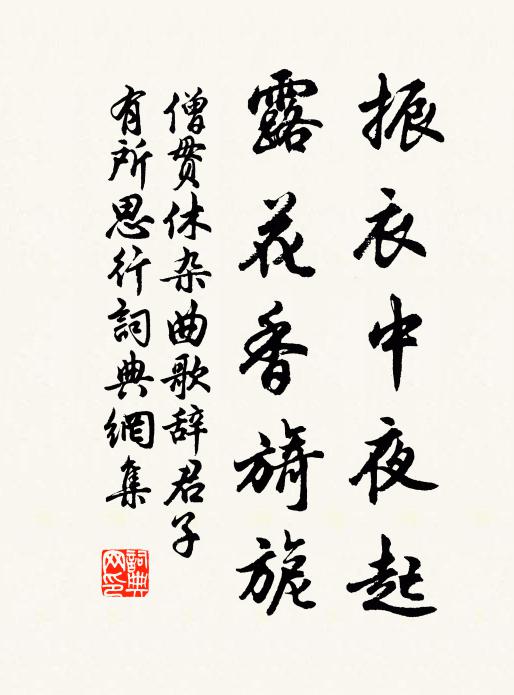 振衣中夜起
露花香旖旎
僧贯休杂曲歌辞君子
有所思行詞典網集
詞典网印